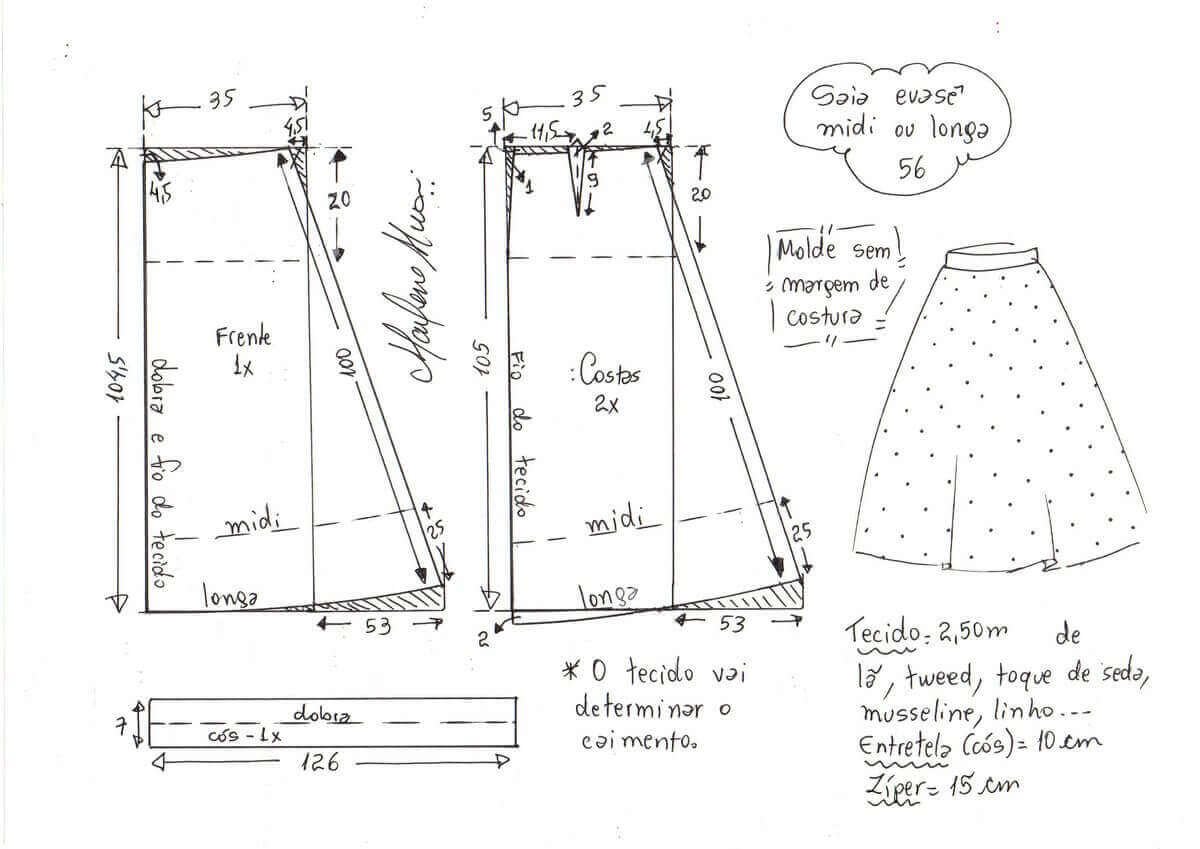 Saia evasê
midi ou longa
56
35
4,5
4,5
20
104,5
Frente
1x
dobra e fio do tecido
100
midi
25
longa
53
Marlene Mukai
35
5
11,5
2
4,5
1
9
20
105
Fio do tecido
Costas
2x
100
midi
25
longa
2
53
Molde sem
margem de
costura
7
dobra
cós - 1x
126
* O tecido vai
determinar o
caimento.
Tecido = 2,50m de
lã, tweed, toque de seda,
musseline, linho....
Entretela (cós) = 10 cm
Zíper = 15 cm